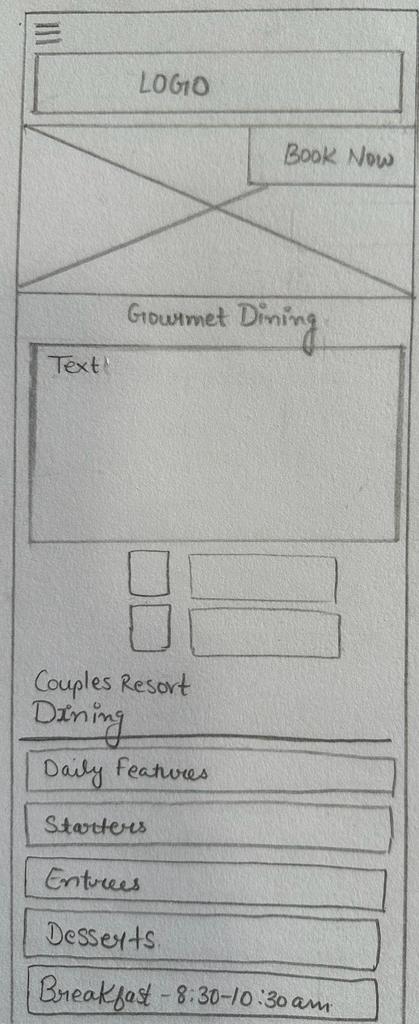 LOGO
Book Now
Gourmet Dining
Text
Couples Resort
Dining
Daily Features
Starters
Entrees
Desserts
Breakfast - 8:30-10:30am